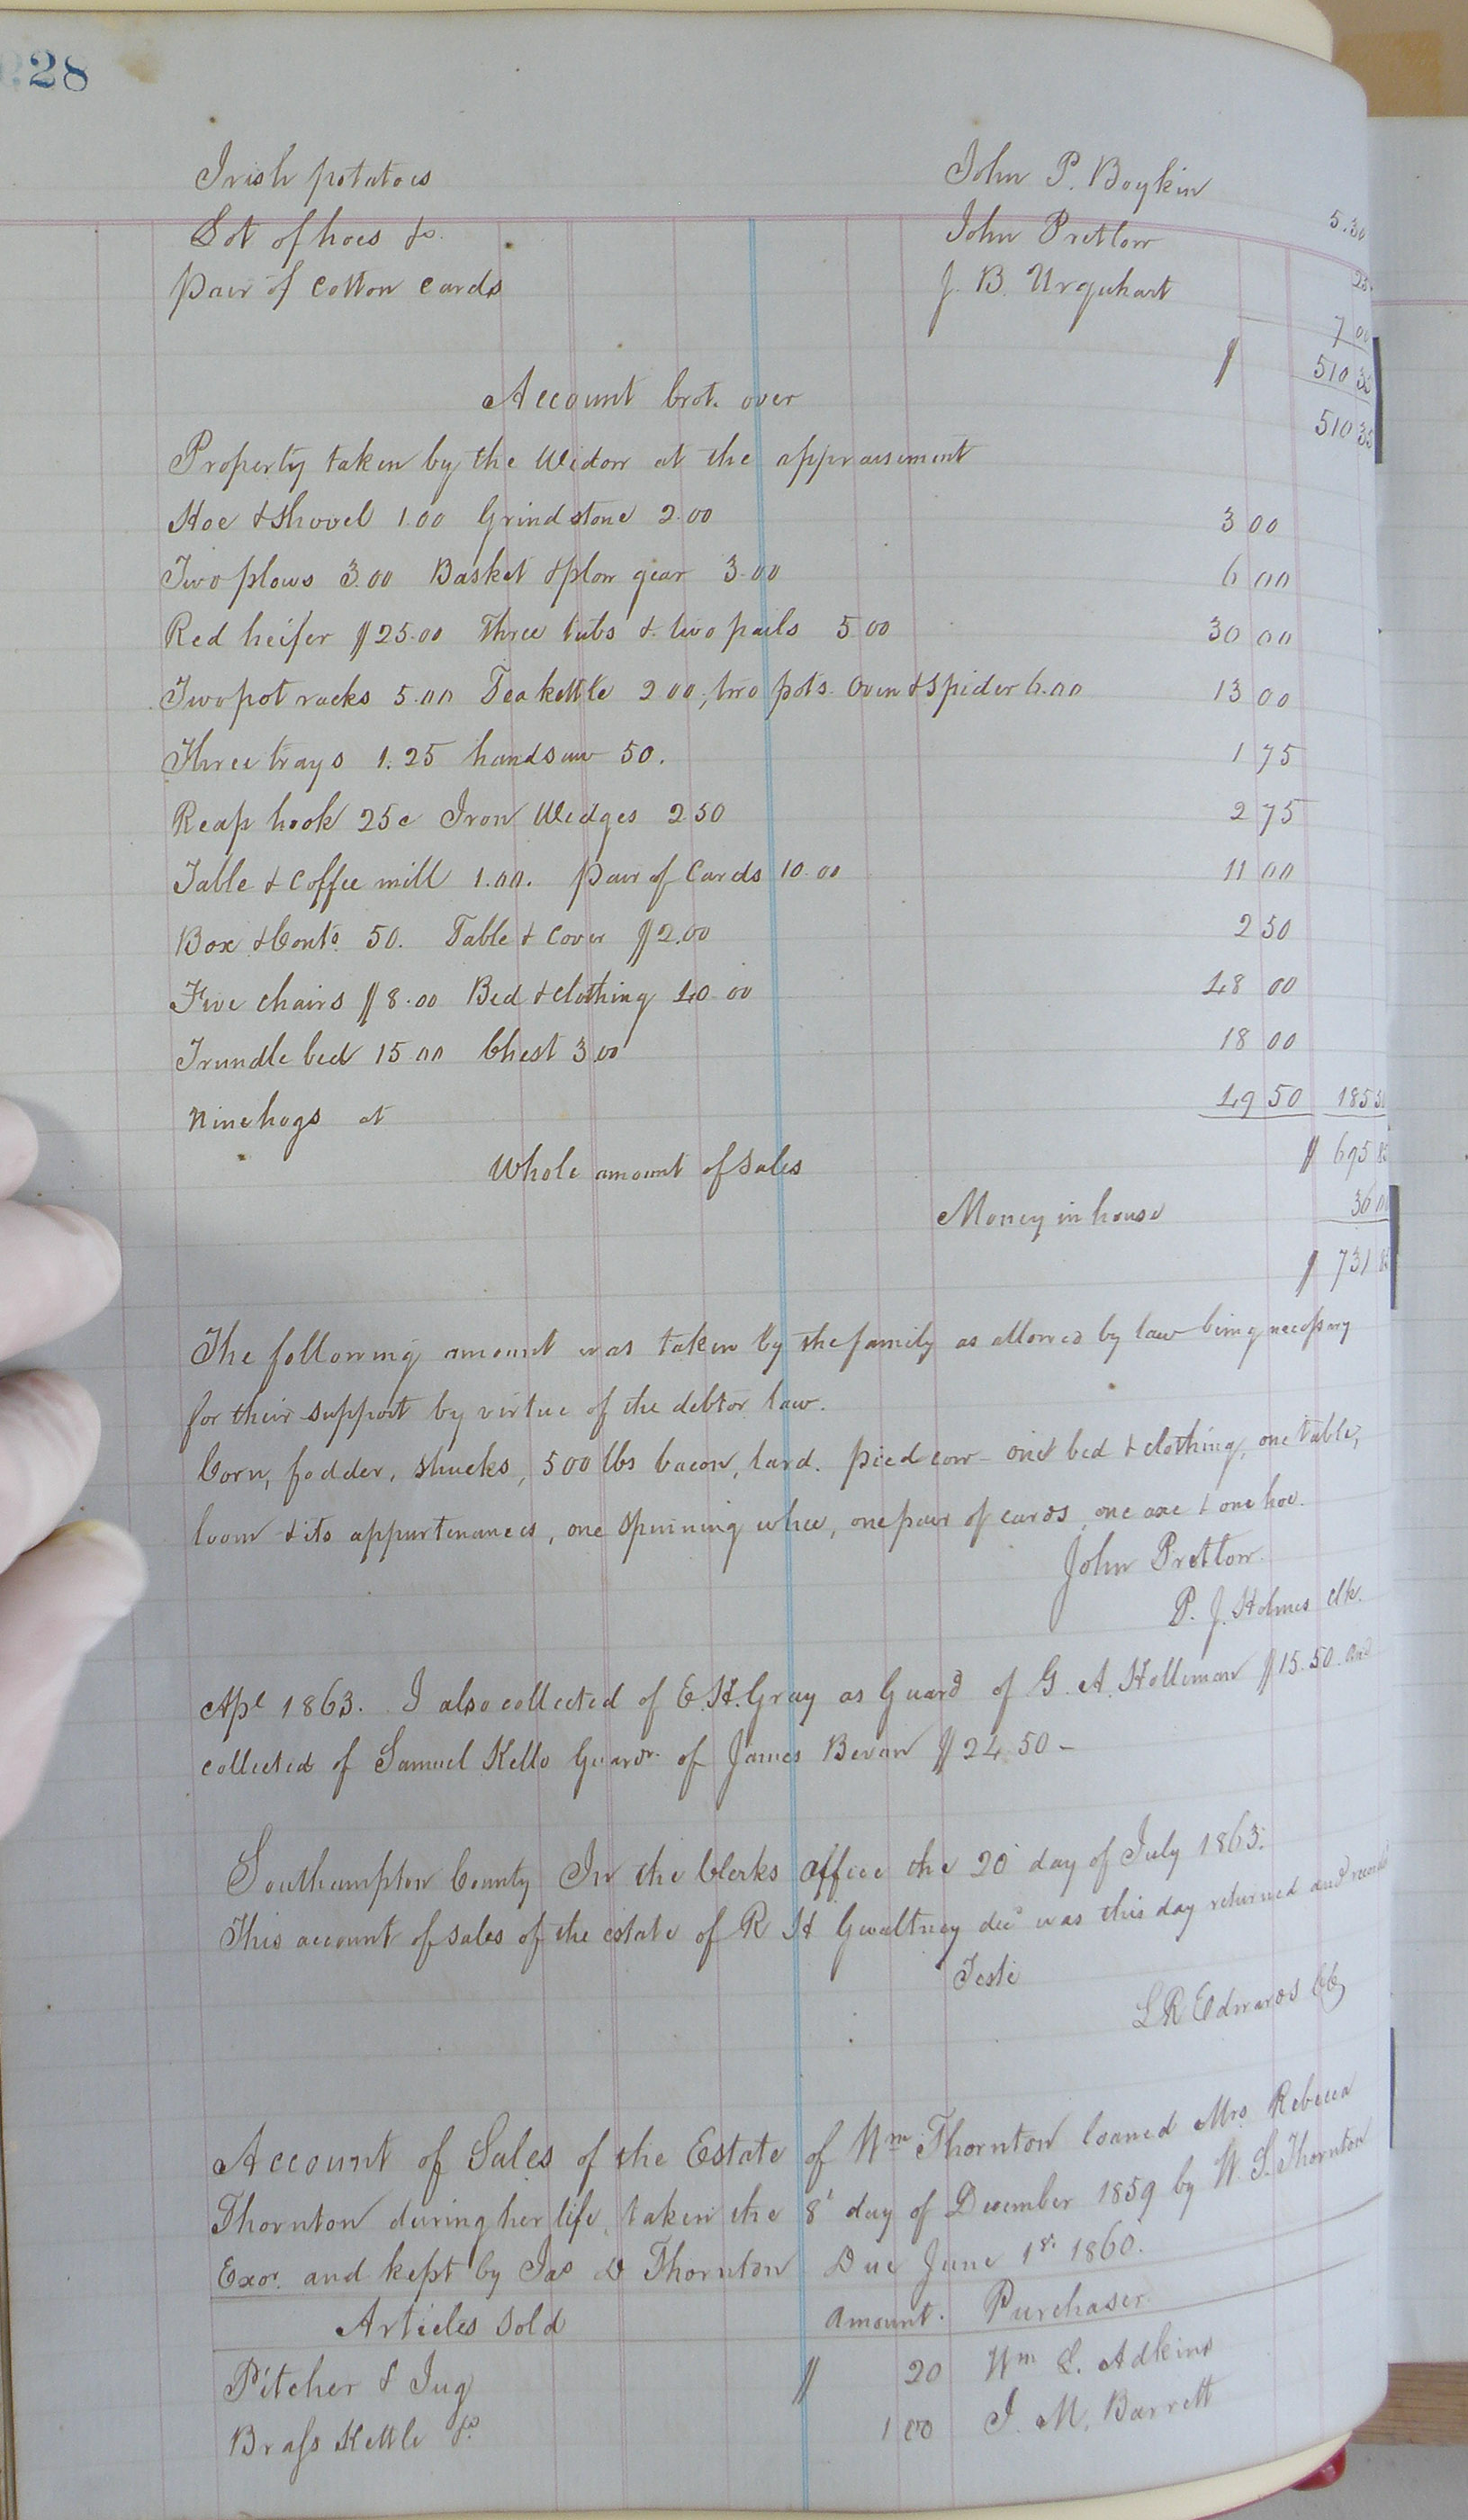 28
Irish potatoes John P. Boykin 5.30
Lot of hoes &c. John Pretlow 25
pair of cotton cards J. B. Urquhart 7 00
$ 510 35
Account brot. over 510 35
Property taken by the Widow at the appraisement
Hoe & shovel 1.00 Grindstone 2.00 3 00
Two plows 3.00 Basket & plow gear 3.00 6 00
Red heifer $25.00 Three tubs & two pails 5 00 30 00
Two pot racks 5.00 Tea kettle 2 00, two pots. Oven & Spider 6.00 13 00
Three trays 1.25 handsaw 50. 1 75
Reap hook 25c Iron Wedges 2 50 2 75
Table & Coffee mill 1.00. pair of Cards 10.00 11 00
Box & Conts. 50. Table & Cover $2.00 2 50
Five chairs $8.00 Bed & clothing 40 00 48 00
Trundle bed 15 00 Chest 3 00 18 00
Nine hogs at 49 50 185 50
Whole amount of sales $ 695 85
Money in house 36 00
$ 731 85
The following amount was taken by the family as allowed by law being necessary
for their support by virtue of the debtor law.
Corn, fodder, shucks, 500 lbs bacon, lard. pied cow - one bed & clothing, one table,
loom & its appurtenances, one spinning whee, one pair of cards, one axe & one hoe.
John Pretlow.
P. J. Holmes clk.
Apl 1863. I also collected of E. H. Gray as Guard of G. A. Holleman $15.50. and
collected of Samuel Kello Guardr. of James Bevan $24.50 -
Southampton County In the Clerks Office the 20 day of July 1863.
This account of sales of the estate of R H Gwaltney decd was this day returned and
Teste
L R Edwards CC
Account of Sales of the Estate of Wm Thornton loaned Mrs Rebecca
Thornton during her life, taken the 8t day of December 1859 by W. S. Thornton
Exor. and kept by Jas D Thornton Due June 1st. 1860.
Articles Sold Amount. Purchaser.
Pitcher & Jug $ 20 Wm L. Adkins
Brass Kettle &c 1 00 J. M. Barrett